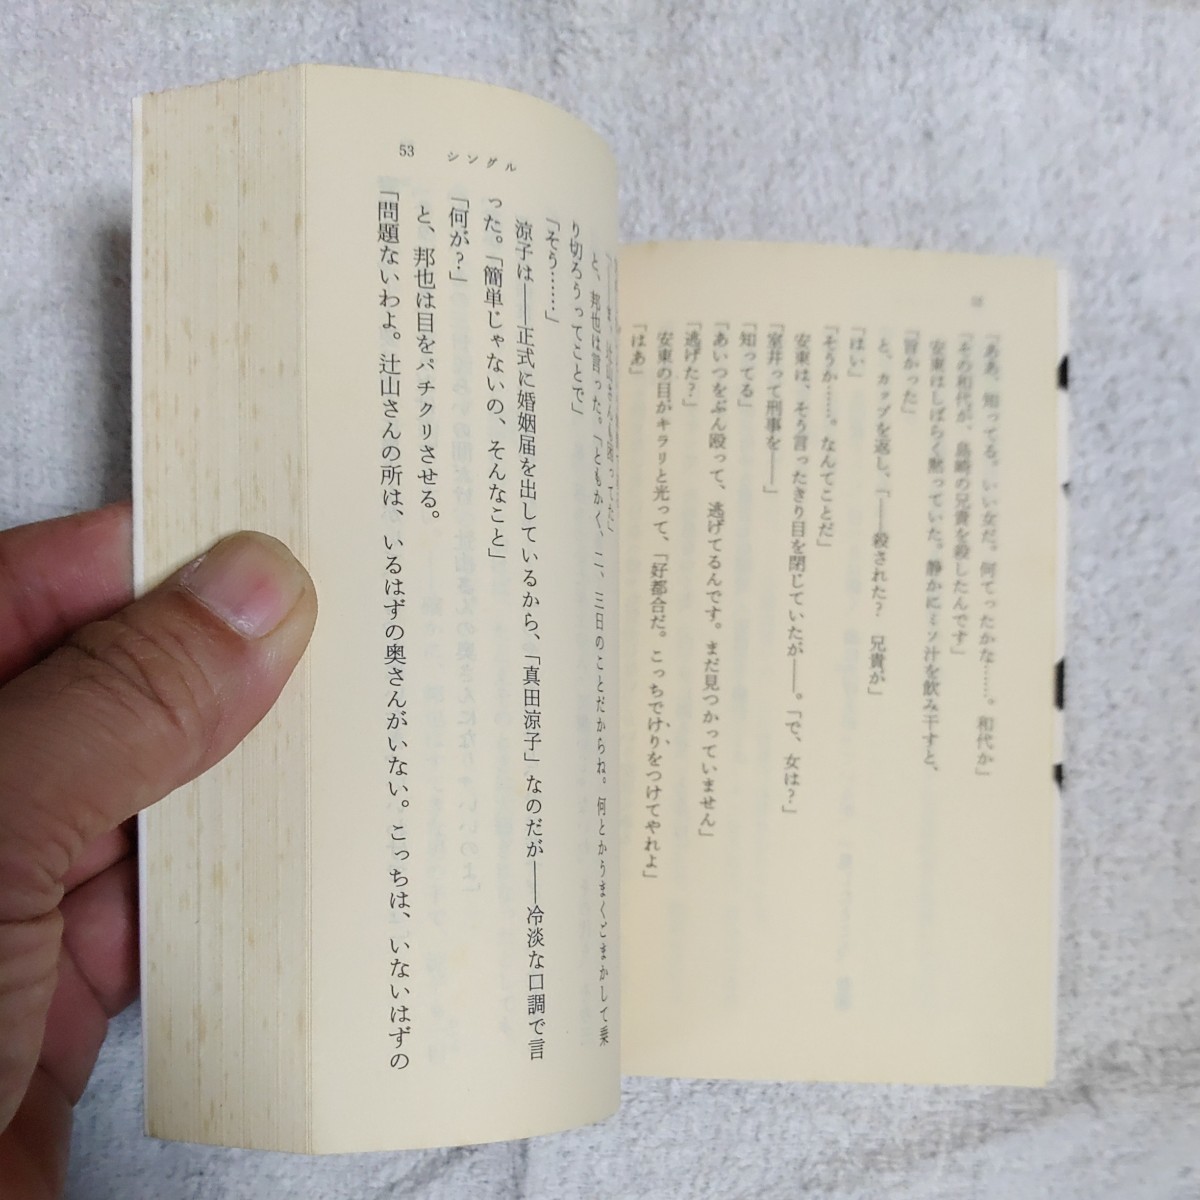 「ああ、知ってる。いい女だ。何てったかな……。和代か」
「その和代が、島崎の兄貴を殺したんです」
安東はしばらく黙っていた。静かにミソ汁を飲み干すと、
「旨かった」
と、カップを返し、「――殺された？　兄貴が」
「はい」
「そうか……。なんてことだ」
安東は、そう言ったきり目を閉じていたが――。「で、女は？」
「室井って刑事を――」
「知ってる」
「あいつをぶん殴って、逃げてるんです。まだ見つかっていません」
「逃げた？」
安東の目がキラリと光って、「好都合だ。こっちでけりをつけてやれよ」
「はあ」
53　シングル
と、邦也は言った。「ともかく、二、三日のことだからね。何とかうまくごまかして乗
り切ろうってことで」
「そう……」
涼子は――正式に婚姻届を出しているから、「真田涼子」なのだが――冷淡な口調で言
った。「簡単じゃないの、そんなこと」
「何が？」
と、邦也は目をパチクリさせる。
「問題ないわよ。辻山さんの所は、いるはずの奥さんがいない。こっちは、いないはずの